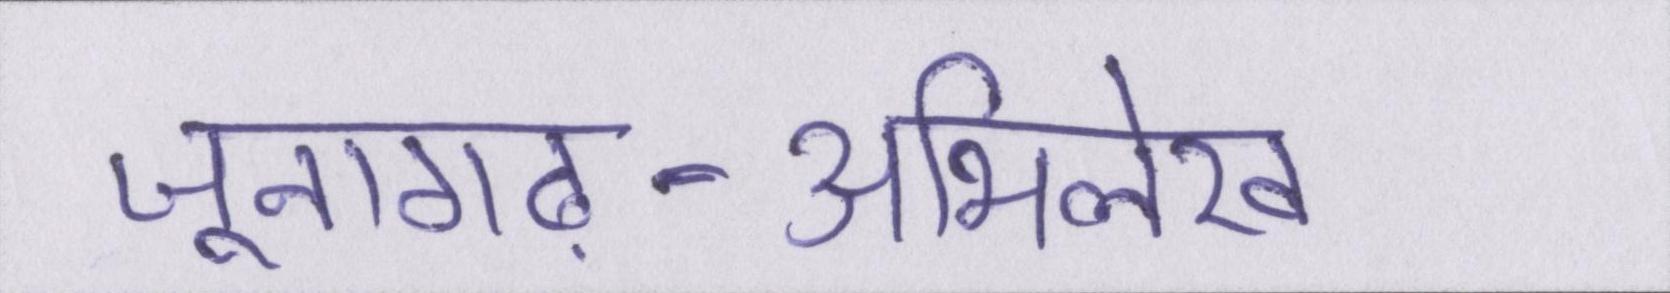 जूनागढ़-अभिलेख